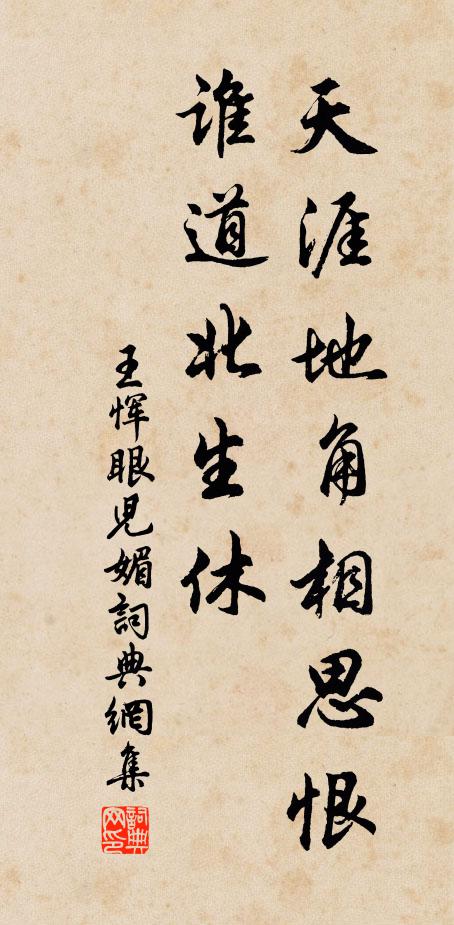 天涯地角相思恨
誰道此生休
王恽眼兒媚詞典網集
詞典网印